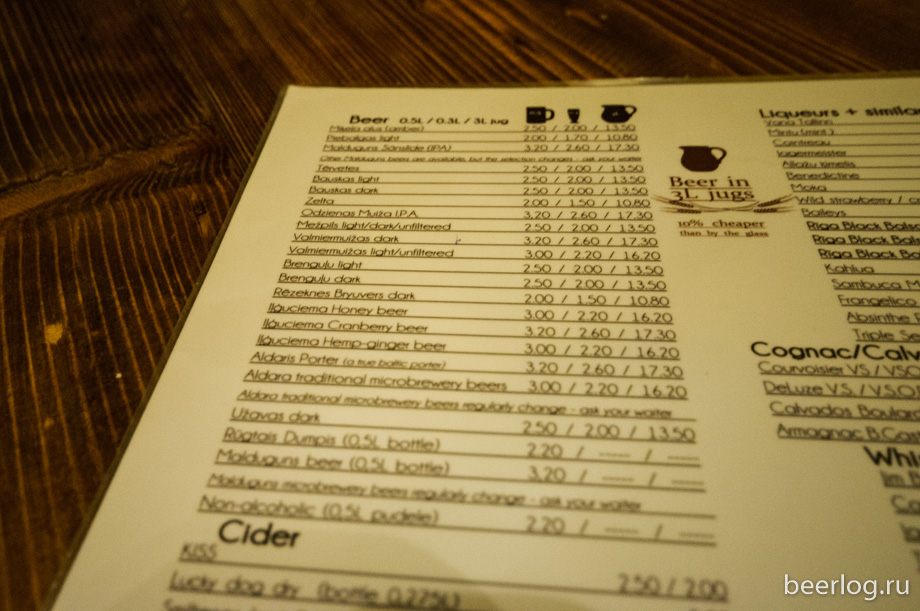 Beer 0.5L / 0.3L / 3L jug
Miķeļa alus (amber) 2.50 / 2.00 / 13.50
Piebalgas light 2.00 / 1.70 / 10.80
Malduguns Sānslīde (IPA) 3.20 / 2.60 / 17.30
Other Malduguns beers are available, but the selection changes - ask your waiter
Tērvetes 2.50 / 2.00 / 13.50
Bauskas light 2.50 / 2.00 / 13.50
Bauskas dark 2.50 / 2.00 / 13.50
Zelta 2.00 / 1.50 / 10.80
Odzienas Muiža I.P.A. 3.20 / 2.60 / 17.30
Mežpils light/dark/unfiltered 2.50 / 2.00 / 13.50
Valmiermuižas dark 3.20 / 2.60 / 17.30
Valmiermuižas light/unfiltered 3.00 / 2.20 / 16.20
Brenguļu light 2.50 / 2.00 / 13.50
Brenguļu dark 2.50 / 2.00 / 13.50
Rēzeknes Bryuvers dark 2.00 / 1.50 / 10.80
Iļģuciema Honey beer 3.00 / 2.20 / 16.20
Iļģuciema Cranberry beer 3.20 / 2.60 / 17.30
Iļģuciema Hemp-ginger beer 3.00 / 2.20 / 16.20
Aldaris Porter (a true baltic porter) 3.20 / 2.60 / 17.30
Aldara traditional microbrewery beers 3.00 / 2.20 / 16.20
Aldara traditional microbrewery beers regularly change - ask your waiter
Užavas dark 2.50 / 2.00 / 13.50
Rūgtais Dumpis (0,5L bottle) 2.20 / ----- / -----
Malduguns beer (0,5L bottle) 3.20 / ----- / -----
Malduguns microbrewery beers regularly change - ask your waiter
Non-alcoholic (0,5L pudele) 2.20 / ----- / -----
Cider
KISS 2.50 / 2.00
Lucky dog dry (bottle 0,275L)
Beer in
3L jugs
10% cheaper
than by the glass
Liqueurs +
Vana Tallinn
Mintu (mint)
Cointreau
Jagermeister
Allažu ķimelis
Benedictine
Moka
Wild strawberry /
Baileys
Riga Black
Riga Black
Riga Black
Kahlua
Sambuca
Frangelico
Absinthe
Triple
Cognac/
Courvoisier V.S /
DeLuze V.S /
Calvados
Armagnac
Jim
beerlog.ru